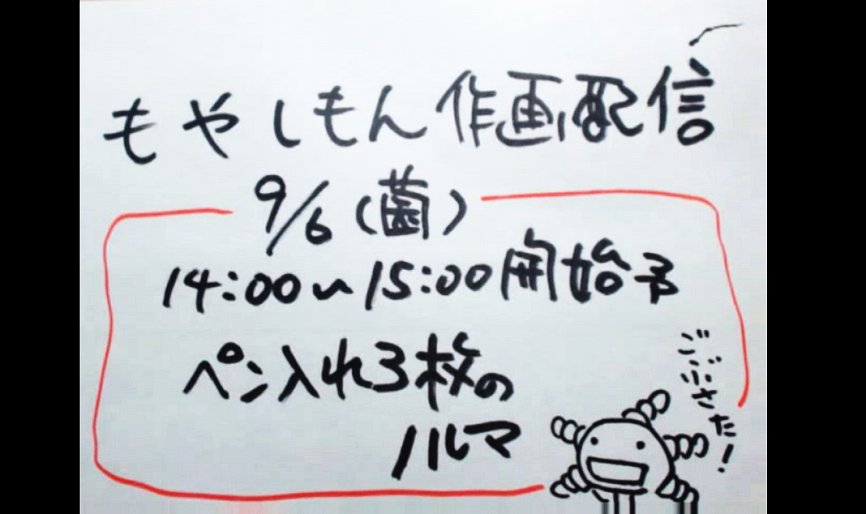 もやしもん作画配信
9/6(菌)
14:00〜15:00開始予
ペン入れ3枚の
ノルマ
ごぶさた!